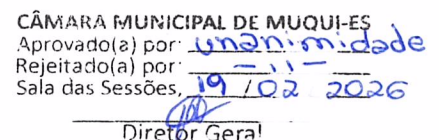 CÂMARA MUNICIPAL DE MUQUI-ES
Aprovado(a) por: unanimidade
Rejeitado(a) por: — 11 —
Sala das Sessões, 19 / 02 2026
Diretor Geral